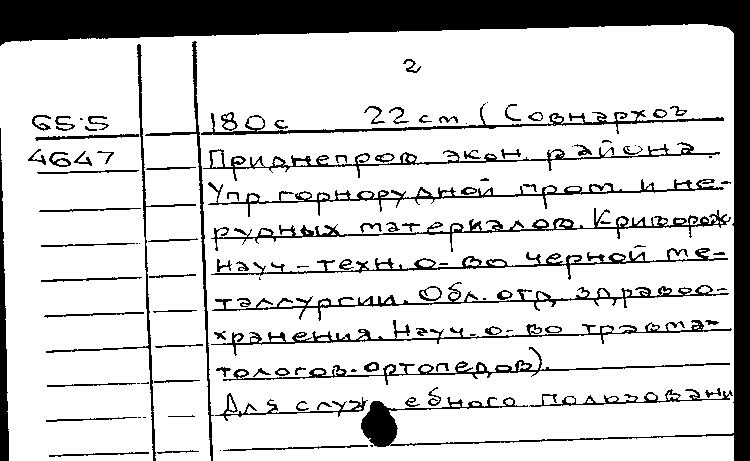 2
65:5 180с 22 cm ( Совнархоз
4647 Приднепров. экон. района.
Упр. горнорудной пром. и не-
рудных материалов. Криворож.
науч.-техн. о-во черной ме-
таллургии. Обл. отд. здравоо-
хранения. Науч. о-во травма-
тологов-ортопедов).
Для служебного пользовани